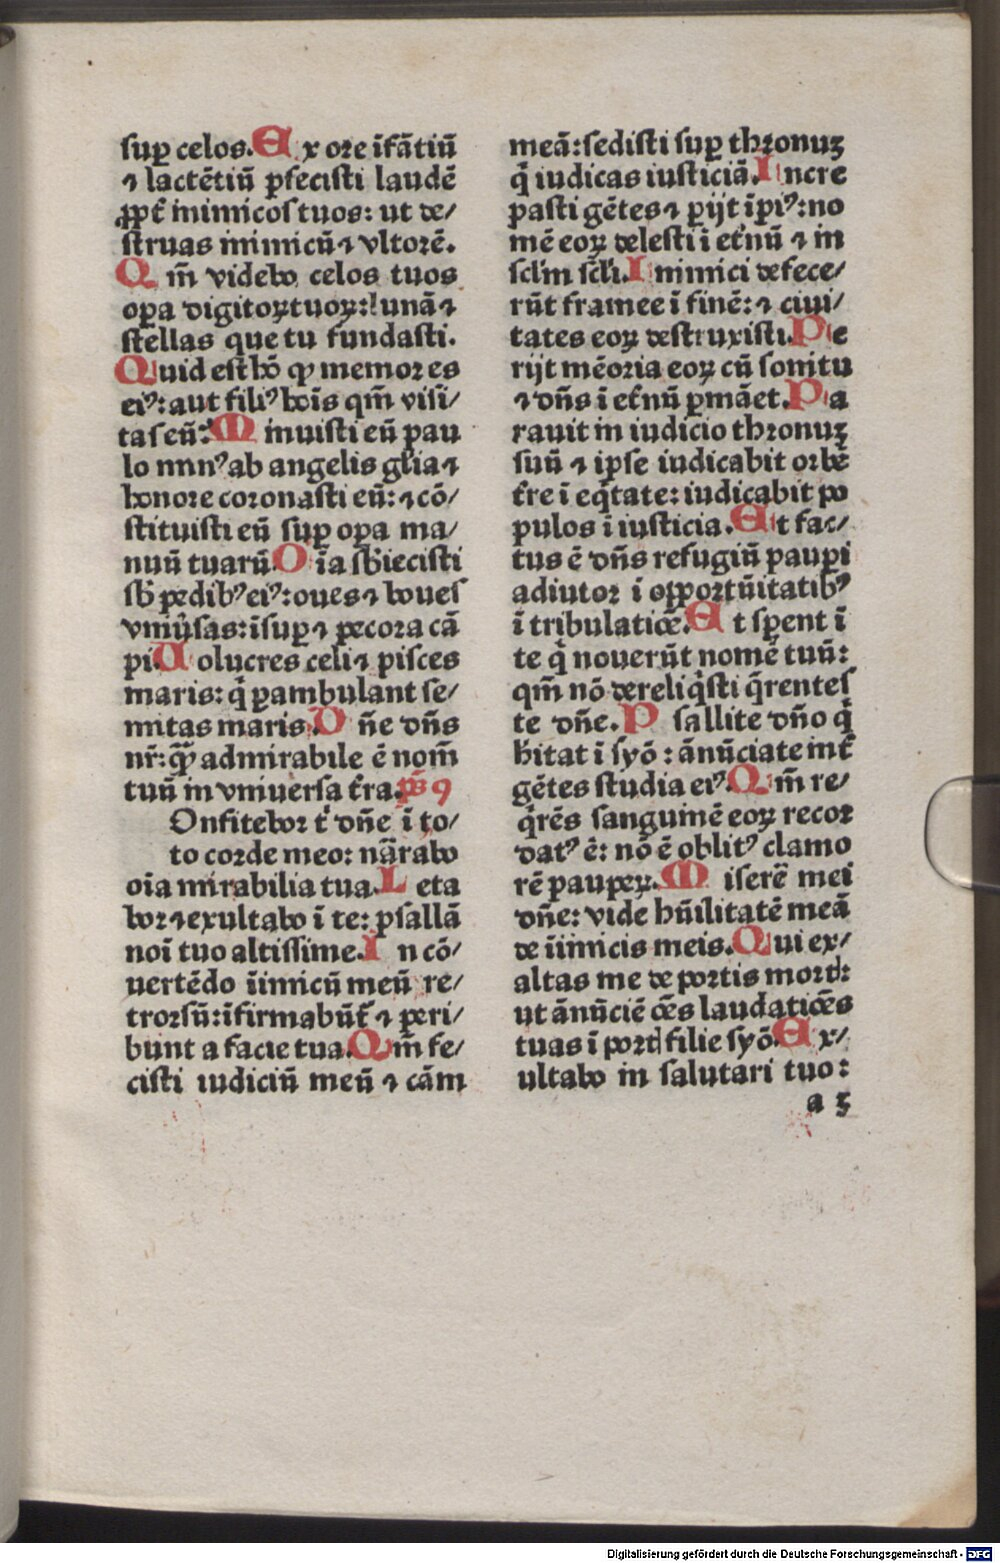 sup̱ celos. Ex ore īfãtiũ
⁊ lactẽtiũ ꝑfecisti laudẽ
ꝓpt̃ inimicos tuos: ut de/
struas inimicũ ⁊ vltorẽ.
Qm̃ videbo celos tuos
oꝑa digitoꝝ tuoꝝ: lunã ⁊
stellas que tu fundasti.
Quid est hõ ꝙ memor es
eiꝰ: aut filiꝰ hoĩs qm̃ visi/
tas eũ: Minuisti eũ pau
lo minꝰ ab angelis gl̃ia ⁊
honore coronasti eũ: ⁊ cõ/
stituisti eũ suꝑ oꝑa ma/
nuũ tuarũ. Oĩa sb̃iecisti
sb̃ pedibꝰ eiꝰ: oues ⁊ boues
vniũsas: īsuꝑ ⁊ pecora cã
pi. Uolucres celi ⁊ pisces
maris: q̃ ꝑambulant se/
mitas maris. Dñe dñs
nr̃: q̃ꝫ admirabile ē nom̃
tuũ in vniuersa t̃ra. ps̃ 9
Onfitebor t̃ dñe ī to/
to corde meo: nãrabo
oĩa mirabilia tua. Leta
bor ⁊ exultabo ī te: psallã
noĩ tuo altissime. In cõ/
uertẽdo ĩimicũ meũ re/
trorsũ: īfirmabũt̃ ⁊ peri/
bunt a facie tua. Qm̃ fe/
cisti iudiciũ meũ ⁊ cãm
meã: sedisti suꝑ thronuꝫ
q̃ iudicas iusticiã. Incre
pasti gẽtes ⁊ ꝑijt īpiꝰ: no
mẽ eoꝝ delesti ī et̃nũ ⁊ in
scl̃m scl̃i. Inimici defece/
rũt framee ī finẽ: ⁊ ciui/
tates eoꝝ destruxisti. Pe
rijt mẽoria eoꝝ cũ sonitu
⁊ dñs ī et̃nũ ꝑmãet. Pa
rauit in iudicio thronuꝫ
suũ ⁊ ipse iudicabit orbẽ
t̃re ī eq̃tate: iudicabit po
pulos ī iusticia. Et fac/
tus ẽ dñs refugiũ pauꝑi
adiutor ī oꝑportũitatibꝰ
ī tribulatiõe. Et sꝑent ī
te q̃ nouerũt nomẽ tuũ:
qm̃ nõ dereliq̃sti q̃rentes
te dñe. Psallite dño q̃
h̃itat ī syõ: ãnũciate int̃
gẽtes studia eiꝰ. Qm̃ re/
q̃rẽs sanguinẽ eoꝝ recor
datꝰ ẽ: nõ ẽ oblitꝰ clamo
rẽ pauꝑeꝝ. Miserẽ mei
dñe: vide hũilitatẽ meã
de ĩimicis meis. Qui ex/
altas me de portis mortꝭ:
ut ãnũciẽ oẽs laudatiões
tuas ī portꝭ filie syõ. Ex/
ultabo in salutari tuo:
a 5
Digitalisierung gefördert durch die Deutsche Forschungsgemeinschaft - DFG